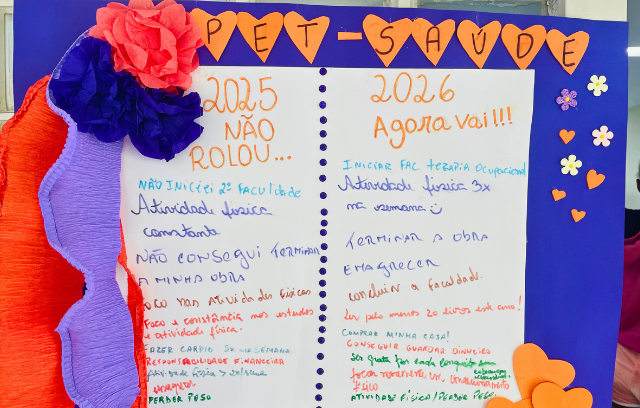 PET-SAÚDE
2025
NÃO
ROLOU...
NÃO INICIEI 2ª FACULDADE
Atividade física
constante
NÃO CONSEGUI TERMINAR
A MINHA OBRA
FOCO NAS ATIVIDADES FÍSICAS
Foco e constância nos estudos
e atividade física.
FAZER CARDIO 5x NA SEMANA
RESPONSABILIDADE FINANCEIRA
Atividade física
PERDER PESO
2026
Agora vai!!!
INICIAR FAC TERAPIA OCUPACIONAL
Atividade física 3x
na semana
TERMINAR A OBRA
EMAGRECER
concluir a faculdade.
Ler pelo menos 20 livros este ano!
COMPRAR MINHA CASA!
CONSEGUIR GUARDAR DINHEIRO
Ser grata por cada conquista
físico
ATIVIDADE FÍSICA/PERDER PESO